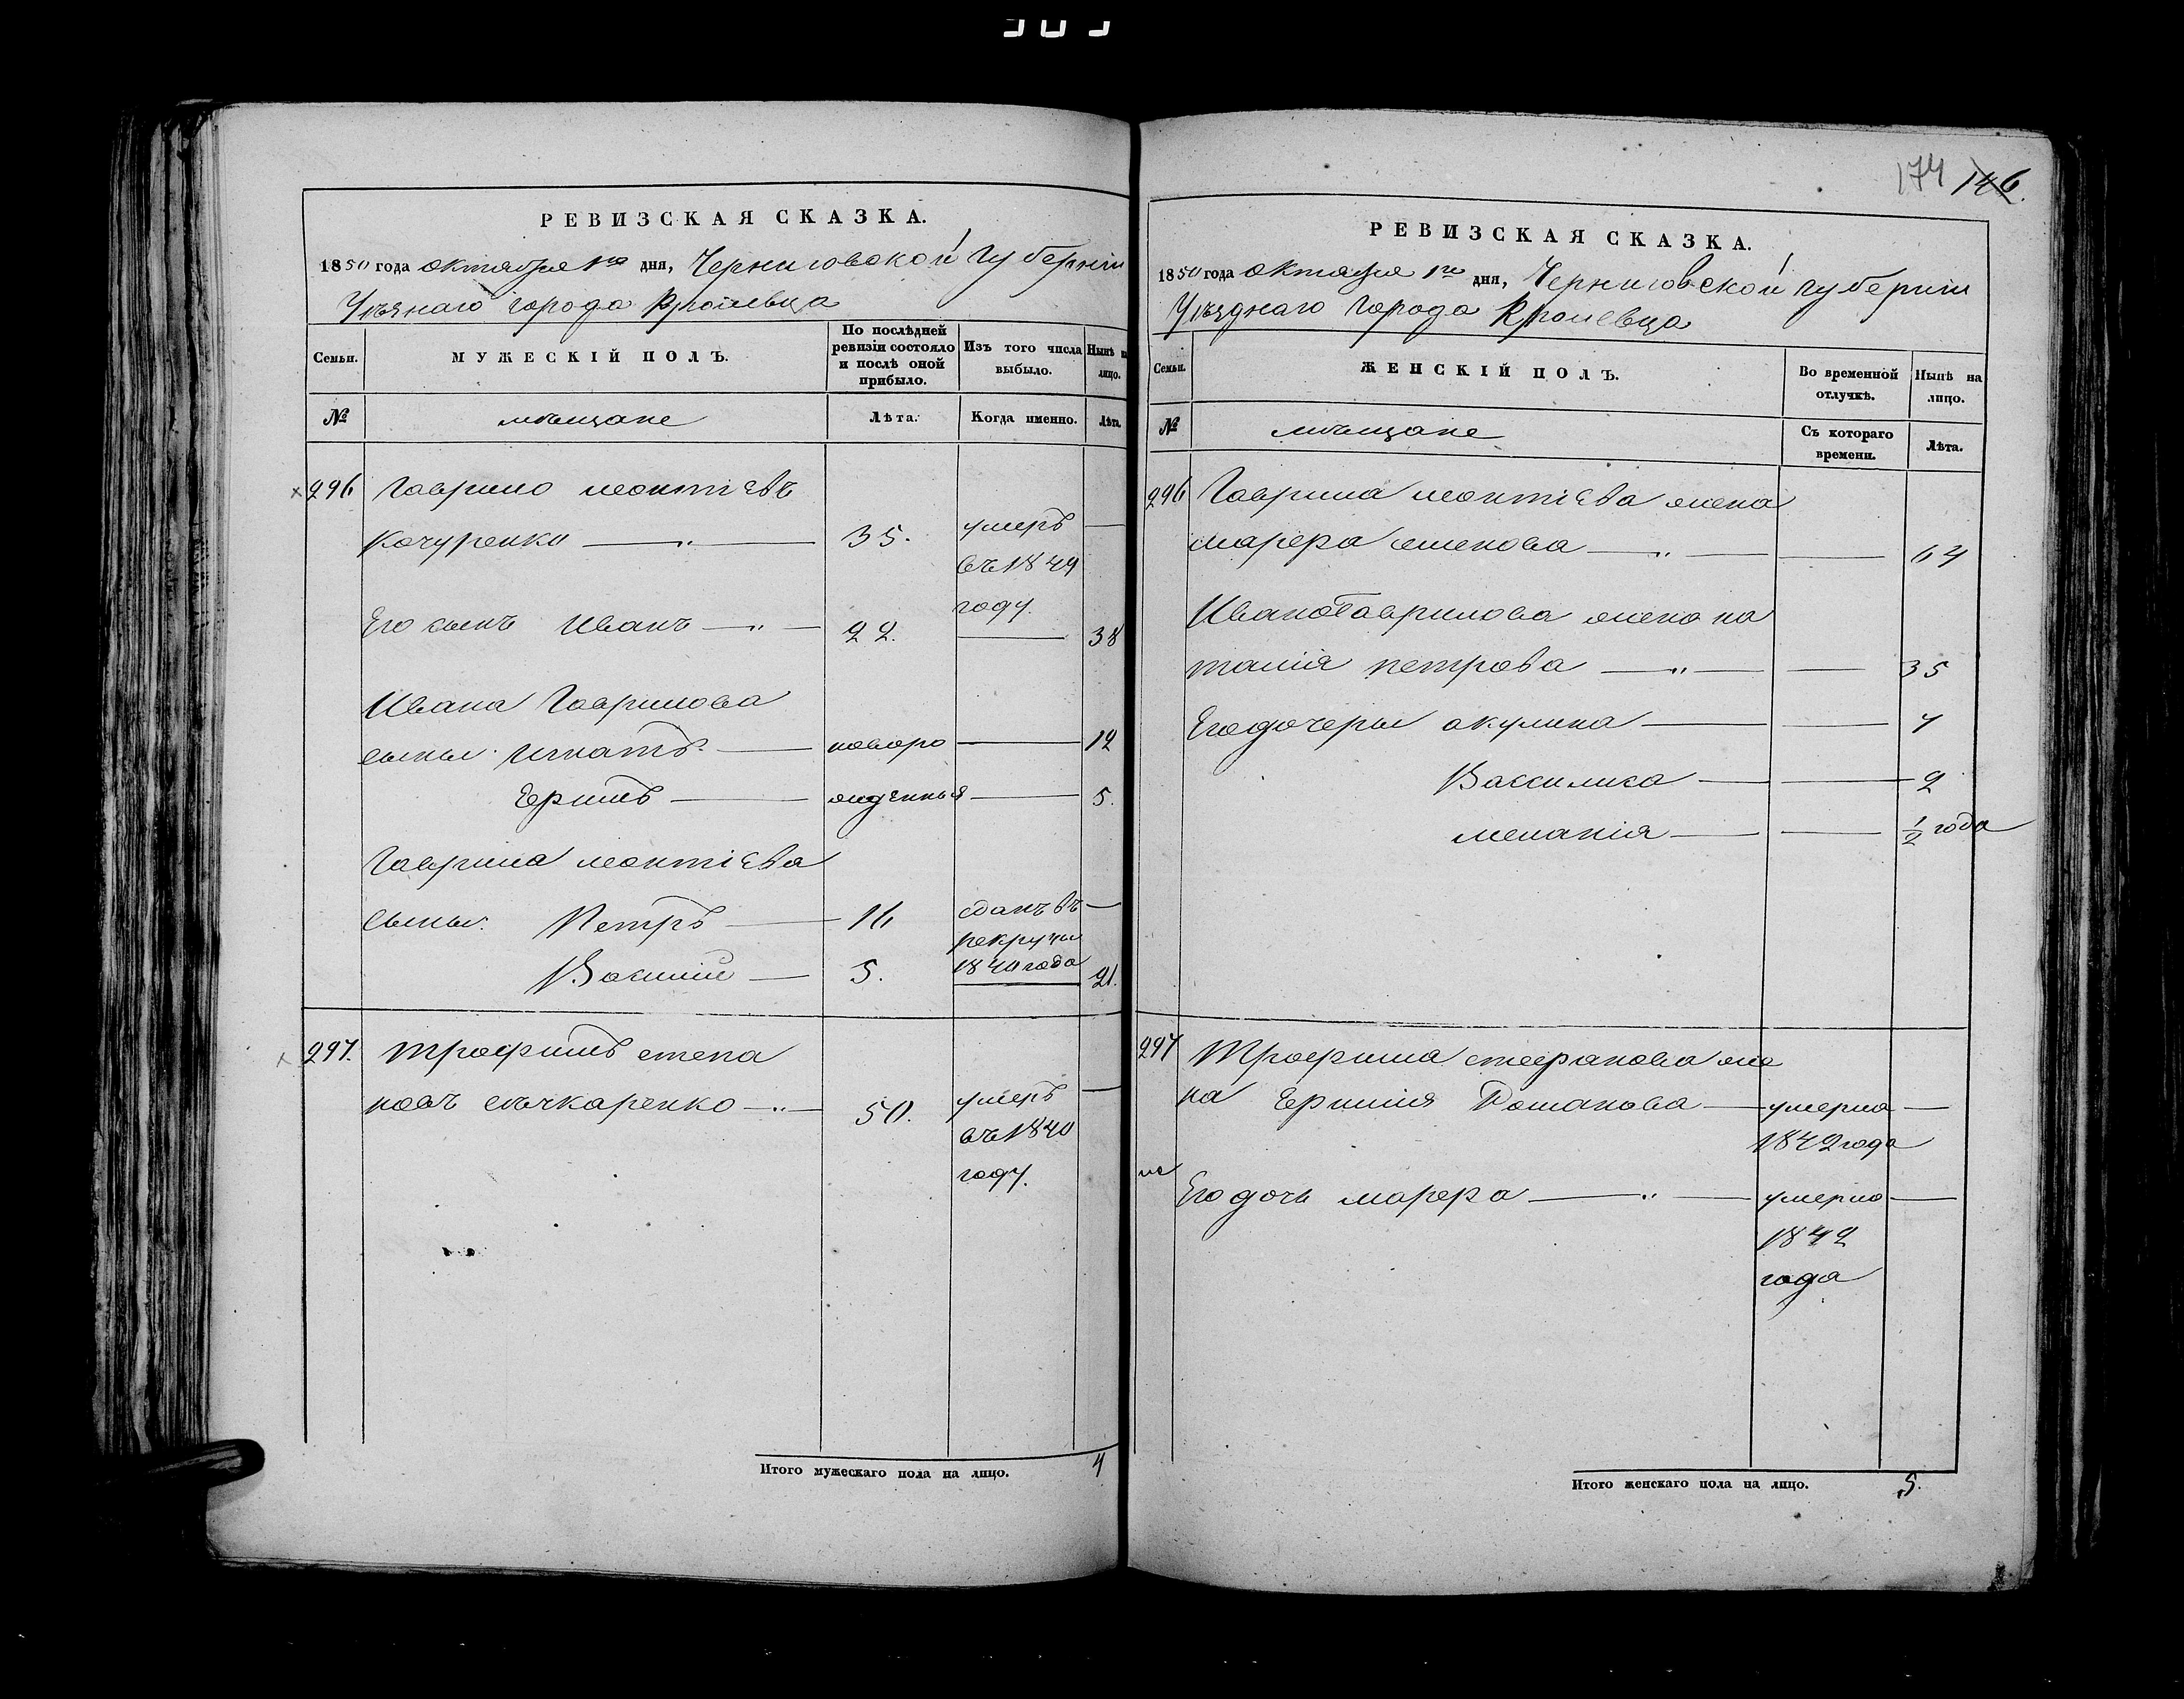 174 146.
РЕВИЗСКАЯ СКАЗКА.
1850 года октября 1го дня, Черниговской губернiи
Уезнаго города Кролевца
Семьи. МУЖЕСКІЙ ПОЛЪ. По послѣдней ревизіи состояло и послѣ оной прибыло. Изъ того числа выбыло. Нынѣ на лицо.
№ мѣщане Лѣта. Когда именно. Лѣта.
296 Гаврило Леонтiевъ
Кочуренко —„— 35. умеръ —
въ 1849
году.
Его сынъ Иванъ —„— 22. — 38
Ивана Гаврилова
сыны: Игнатъ — новоро — 12
Ефимъ — жденные — 5.
Гаврила Леонтiева
сыны: Петръ — 16 сданъ въ —
рекруты
1840 года
Василiй — 5. — 21.
297. Трофимъ Степа
новъ Сѣчкаренко —„— 50. умеръ —
въ 1840
году.
Итого мужескаго пола на лицо. 4
РЕВИЗСКАЯ СКАЗКА.
1850 года октября 1го дня, Черниговской губернiи
Уезднаго города Кролевца
Семьи. ЖЕНСКІЙ ПОЛЪ. Во временной отлучкѣ. Нынѣ на лицо.
№ мѣщане Съ котораго времени. Лѣта.
296 Гаврила Леонтiева жена
Марфа Семенова —„— — 64
Ивана Гаврилова жена На
талiя Петрова —„— — 35
Его дочеры Акулина — — 7
Василиса — — 2
Меланiя — — 1/2 года
297 Трофима Стефанова же
на Ефимiя Романова — умерла —
1842 года
Его дочь Марфа —„— умерла —
1842
года
Итого женскаго пола на лицо. 5.